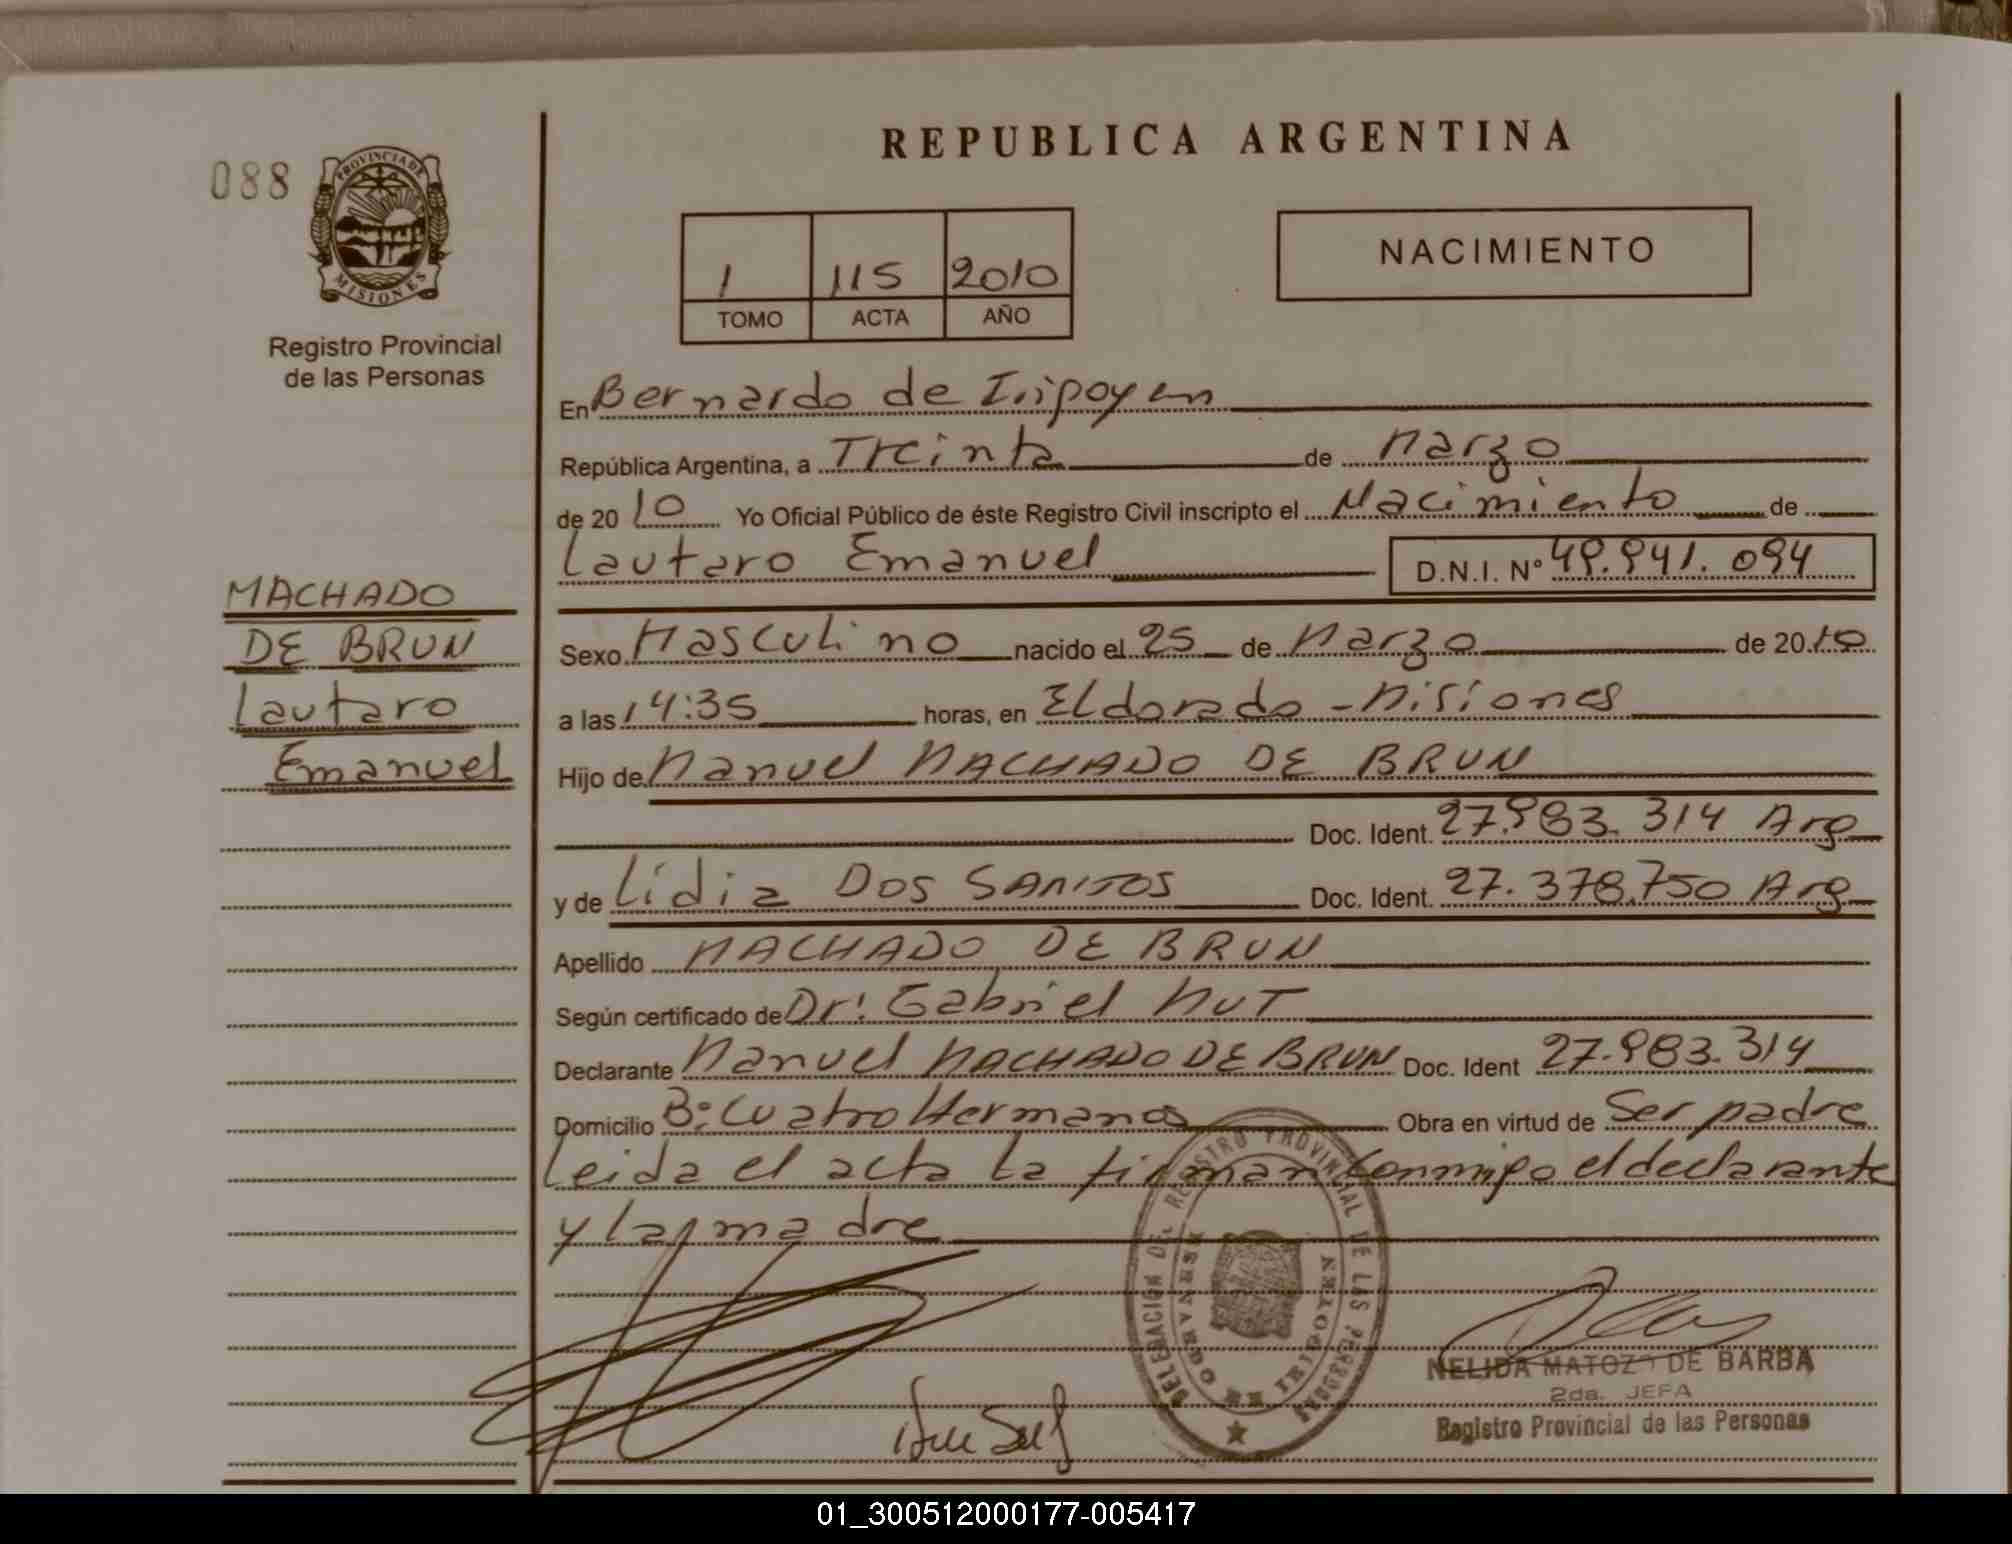 REPUBLICA ARGENTINA
088
PROVINCIA DE
MISIONES
Registro Provincial
de las Personas
NACIMIENTO
1 115 2010
TOMO ACTA AÑO
En Bernardo de Iripoyen
República Argentina, a Treinta de Marzo
de 2010 Yo Oficial Público de éste Registro Civil inscripto el Nacimiento de
Lautaro Emanuel D.N.I. Nº 49.941.094
MACHADO
DE BRUN
Lautaro
Emanuel
Sexo Masculino nacido el 25 de Marzo de 2010
a las 14:35 horas, en Eldorado - Misiones
Hijo de Manuel MACHADO DE BRUN
Doc. Ident. 27.983.314 Arg
y de Lidia DOS SANTOS Doc. Ident. 27.378.750 Arg
Apellido MACHADO DE BRUN
Según certificado de Dr: Gabriel NUT
Declarante Manuel MACHADO DE BRUN Doc. Ident 27.983.314
Domicilio Bº Cuatro Hermanos Obra en virtud de Ser padre
Leida el acta la firman conmigo el declarante
y la madre
DELEGACIÓN DEL REGISTRO PROVINCIAL DE LAS PERSONAS
BERNARDO DE IRIGOYEN
NELIDA MATOZO DE BARBA
2da. JEFA
Registro Provincial de las Personas
01_300512000177-005417